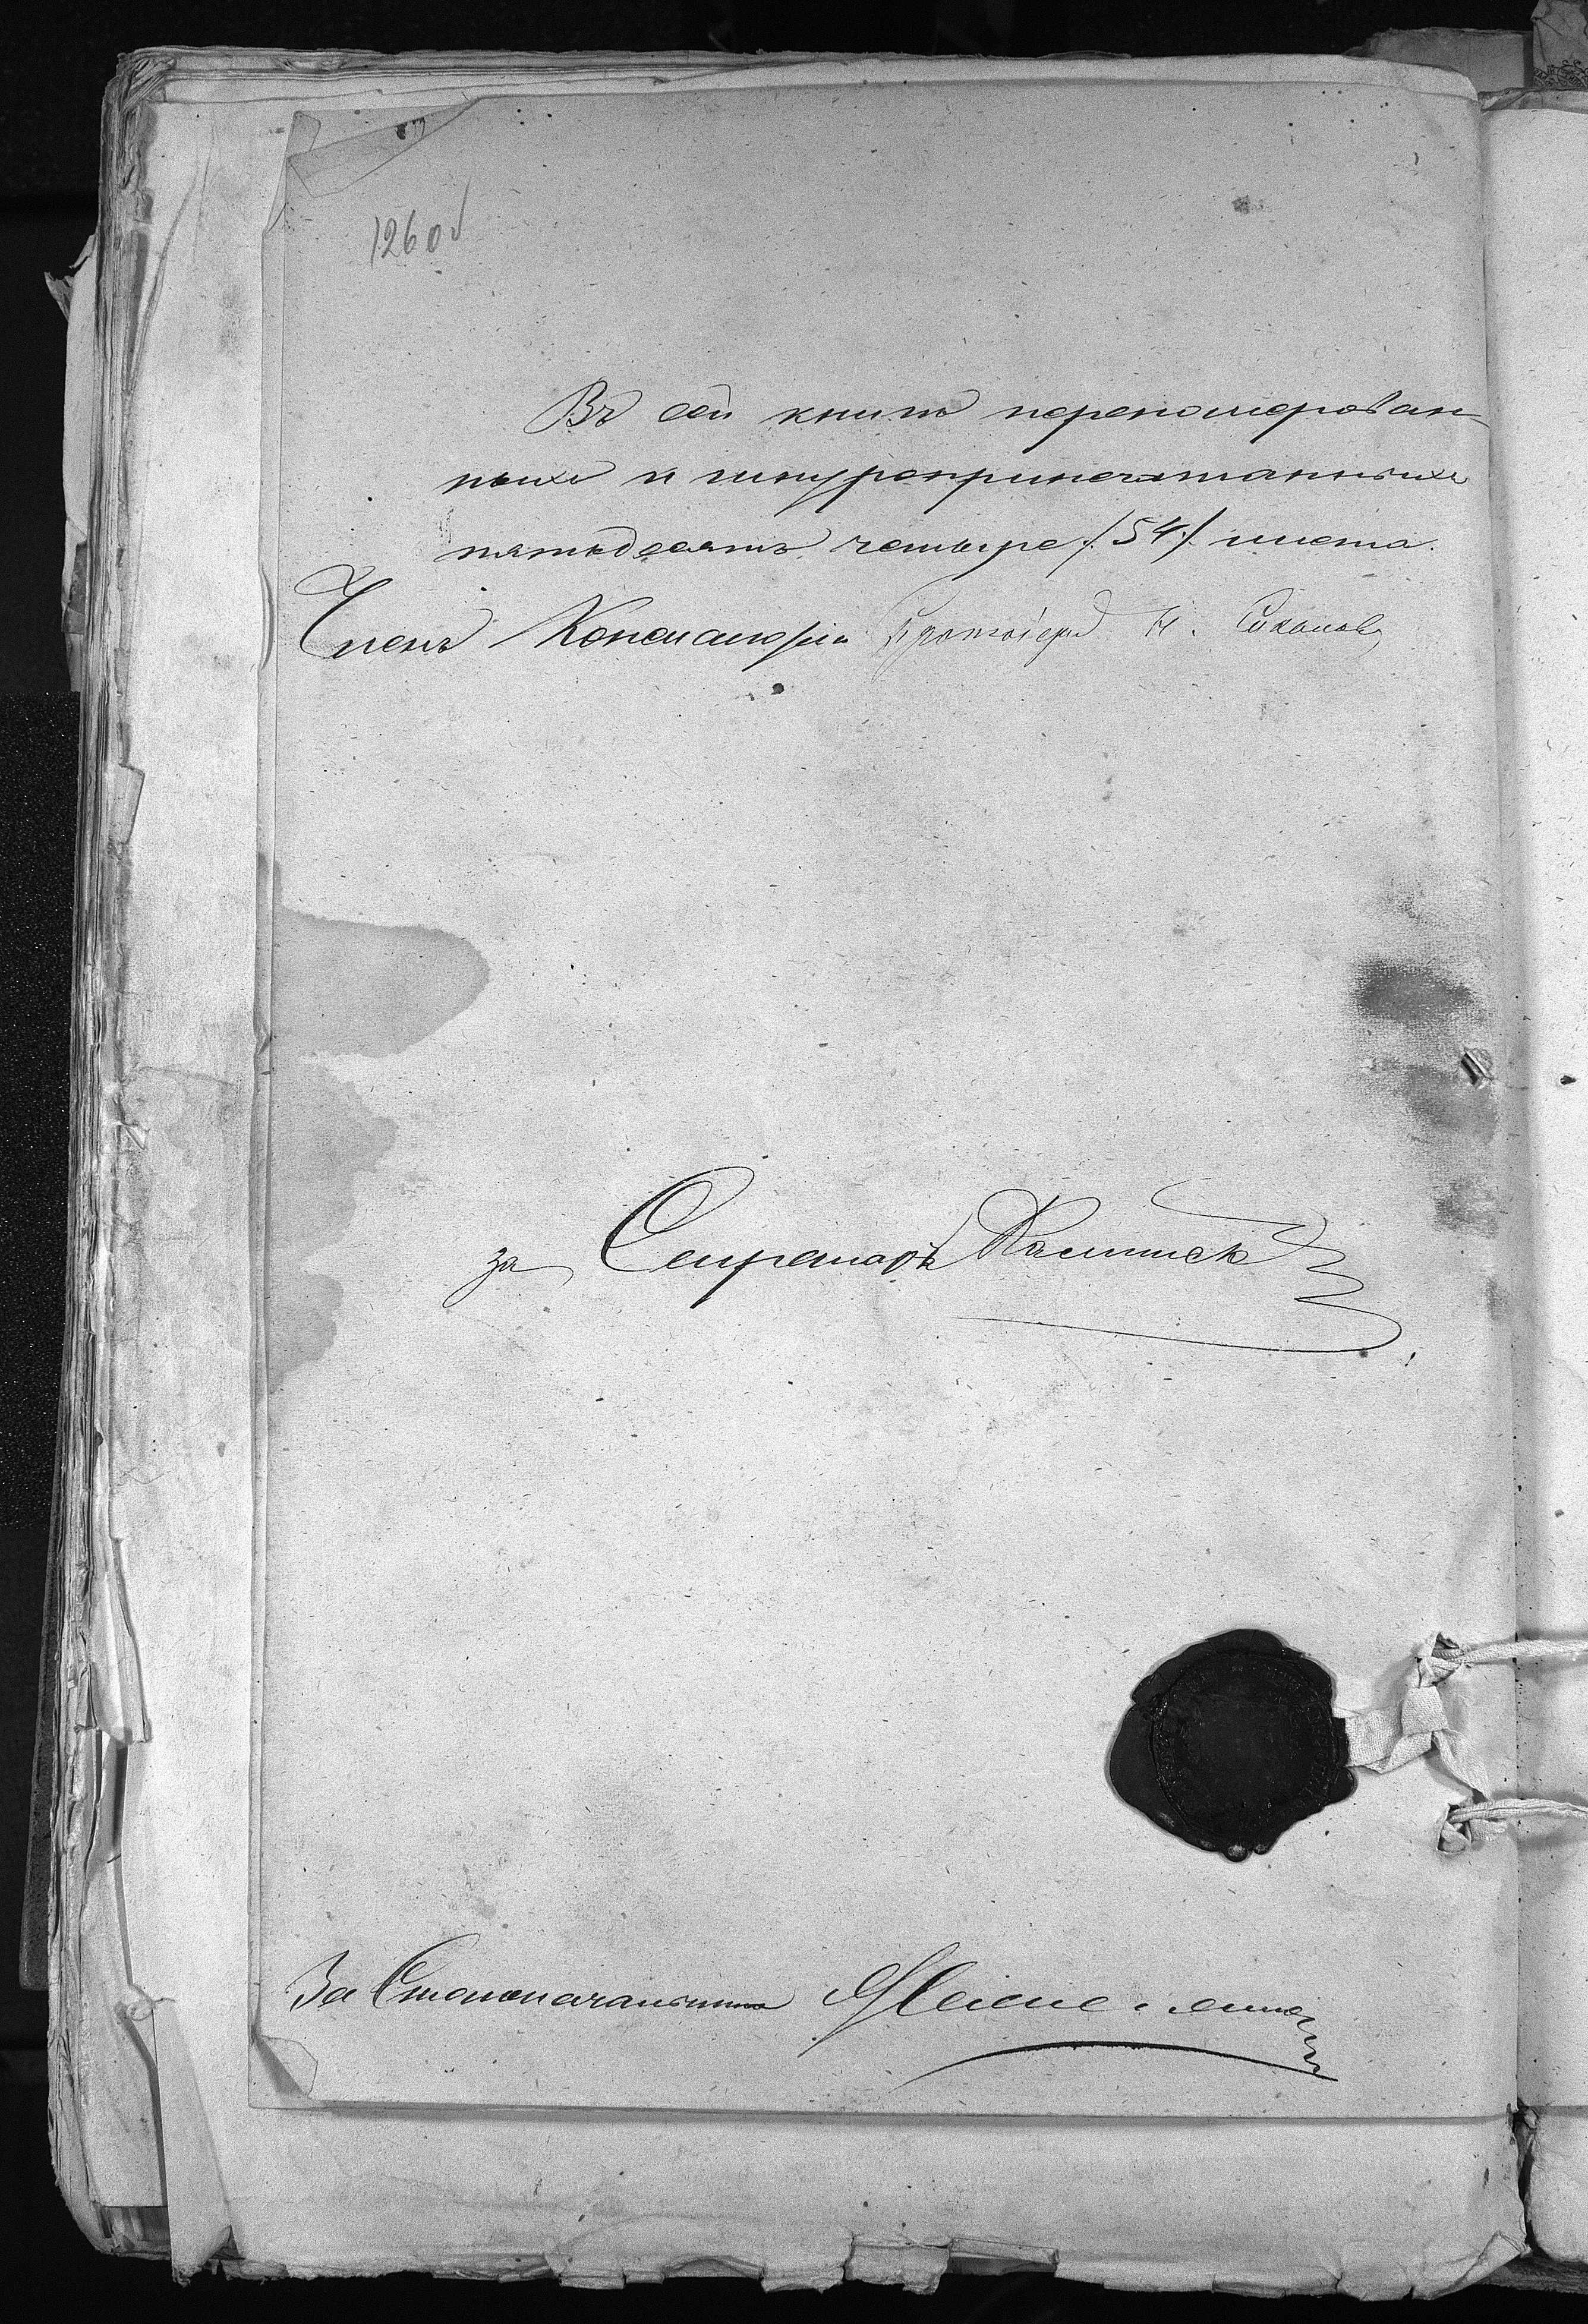 126 об
Въ сей книгѣ перенумерован-
ныхъ и шнуроприпечатанныхъ
пятьдесятъ четыре /54/ листа.
Членъ Консисторіи Протоіерей Н. Соколовъ
за Секретаря
За Столоначальника